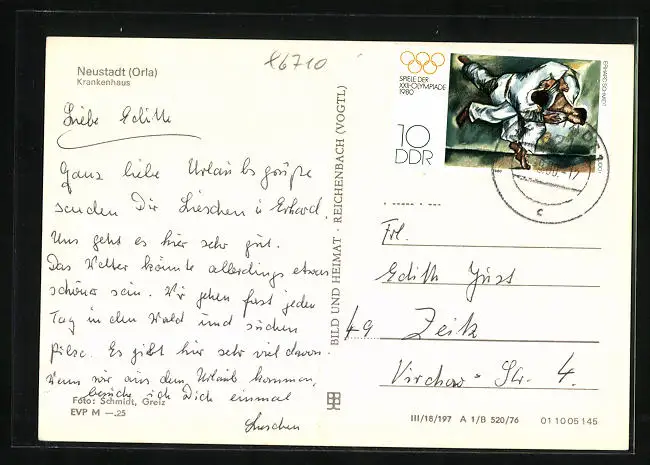 86710
Neustadt (Orla)
Krankenhaus
Liebe Edith
Ganz liebe Urlaubsgrüße
senden Dir Lieschen u. Erhard.
Uns geht es hier sehr gut.
Das Wetter könnte allerdings etwas
schöner sein. Wir gehen fast jeden
Tag in den Wald und suchen
Pilze. Es gibt hier sehr viel davon.
Wenn wir aus dem Urlaub kommen,
besuche ich Dich einmal
Lieschen
Foto: Schmidt, Greiz
EVP M —.25
BILD UND HEIMAT · REICHENBACH (VOGTL)
SPIELE DER
XXII. OLYMPIADE
1980
10
DDR
c
Frl.
Edith Just
49 Zeitz
Virchow-Str. 4.
III/18/197 A 1/B 520/76 01 10 05 145